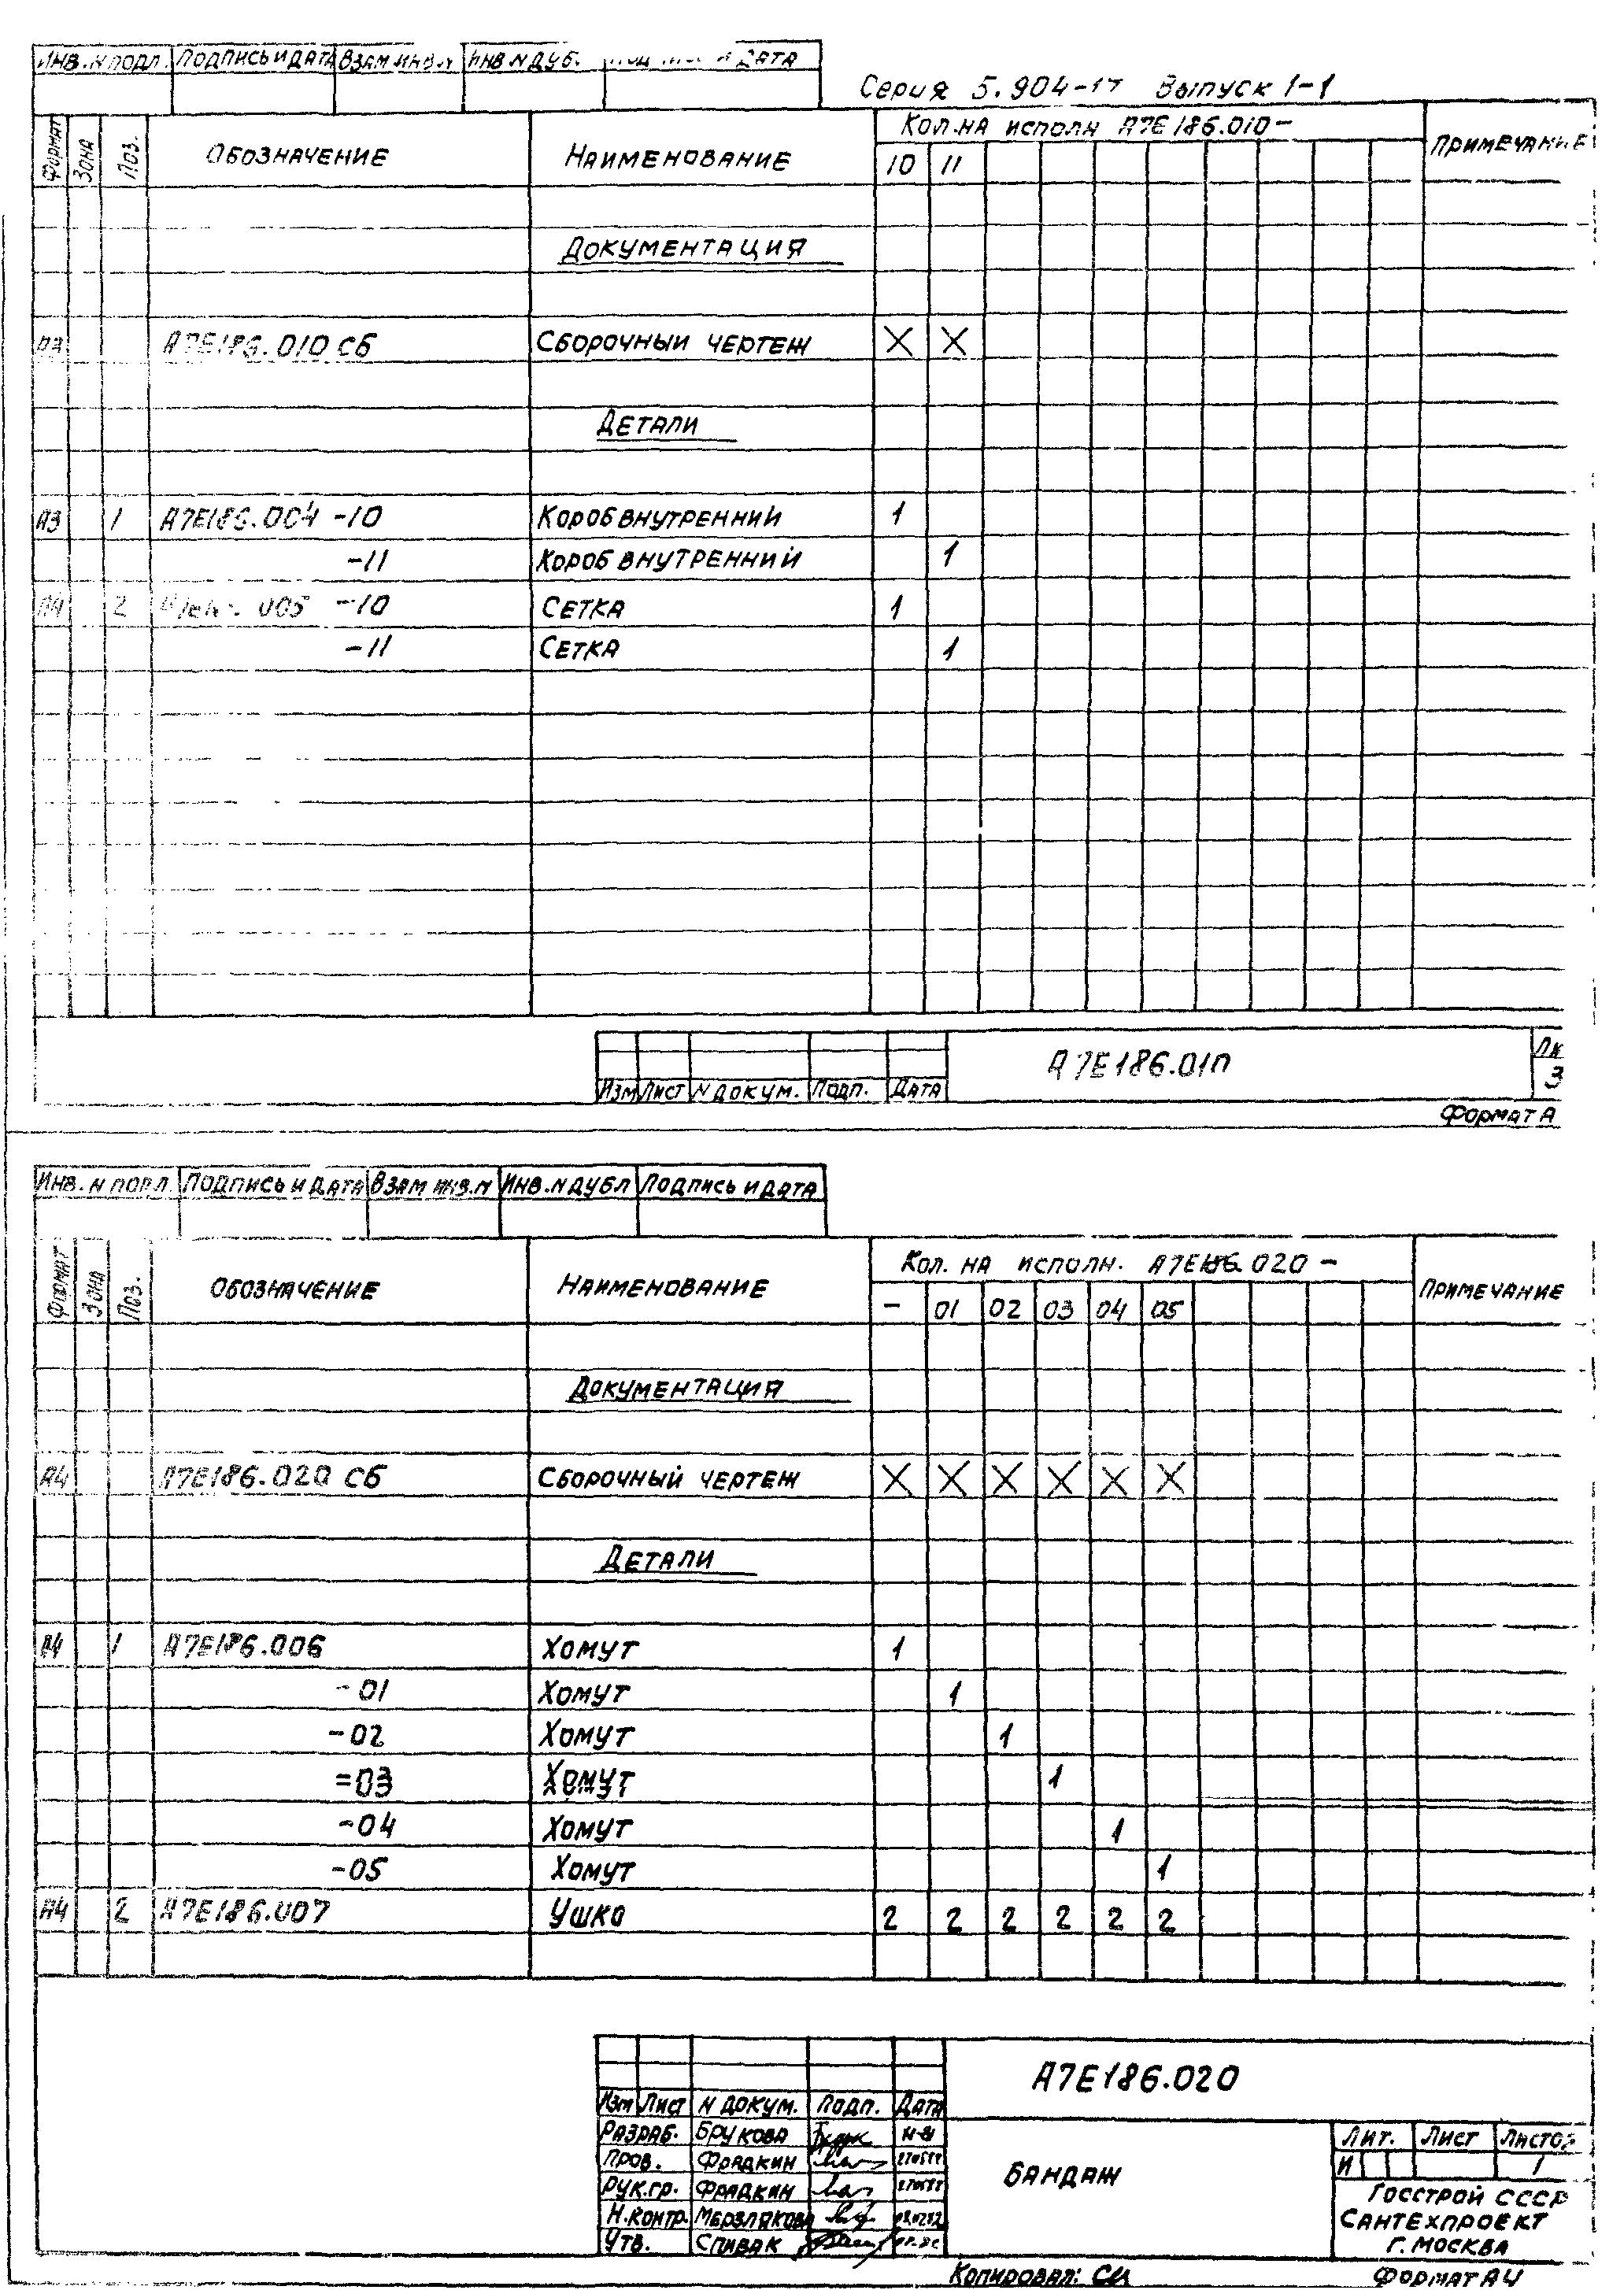 Инв. N подл. Подпись и дата Взам инв. N Инв N дуб. дата
Серия 5.904-17 Выпуск 1-1
Формат Зона Поз. Обозначение Наименование Кол. на исполн А7Е186.010- Примечание
10 11
Документация
А3 А7Е186.010 СБ Сборочный чертеж X X
Детали
А3 1 А7Е186.004 -10 Короб внутренний 1
-11 Короб внутренний 1
А4 2 005 -10 Сетка 1
-11 Сетка 1
А7Е186.010
Изм Лист N докум. Подп. Дата 3
Формат А
Инв. N подл Подпись и дата Взам инв. N Инв. N дубл Подпись и дата
Формат Зона Поз. Обозначение Наименование Кол. на исполн. А7Е186.020 - Примечание
- 01 02 03 04 05
Документация
А4 А7Е186.020 СБ Сборочный чертеж X X X X X X
Детали
А4 1 А7Е186.006 Хомут 1
-01 Хомут 1
-02 Хомут 1
=03 Хомут 1
-04 Хомут 1
-05 Хомут 1
А4 2 А7Е186.007 Ушко 2 2 2 2 2 2
А7Е186.020
Изм Лист N докум. Подп. Дата
Разраб. Брукова
Пров. Фрадкин
Рук.гр. Фрадкин
Н.контр. Мерзлякова
Утв. Спивак
Бандаж
Лит. Лист Листов
И 1
Госстрой СССР
Сантехпроект
г. Москва
Копировал: Формат А4